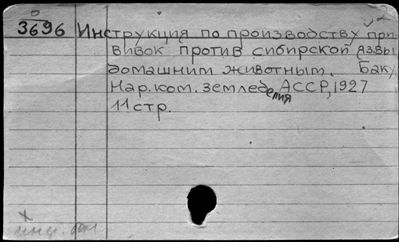 3696 Инструкция по производству при-
вивок против сибирской язвы
домашним животным. Баку,
Нар.ком.земледелия АССР, 1927
11 стр.